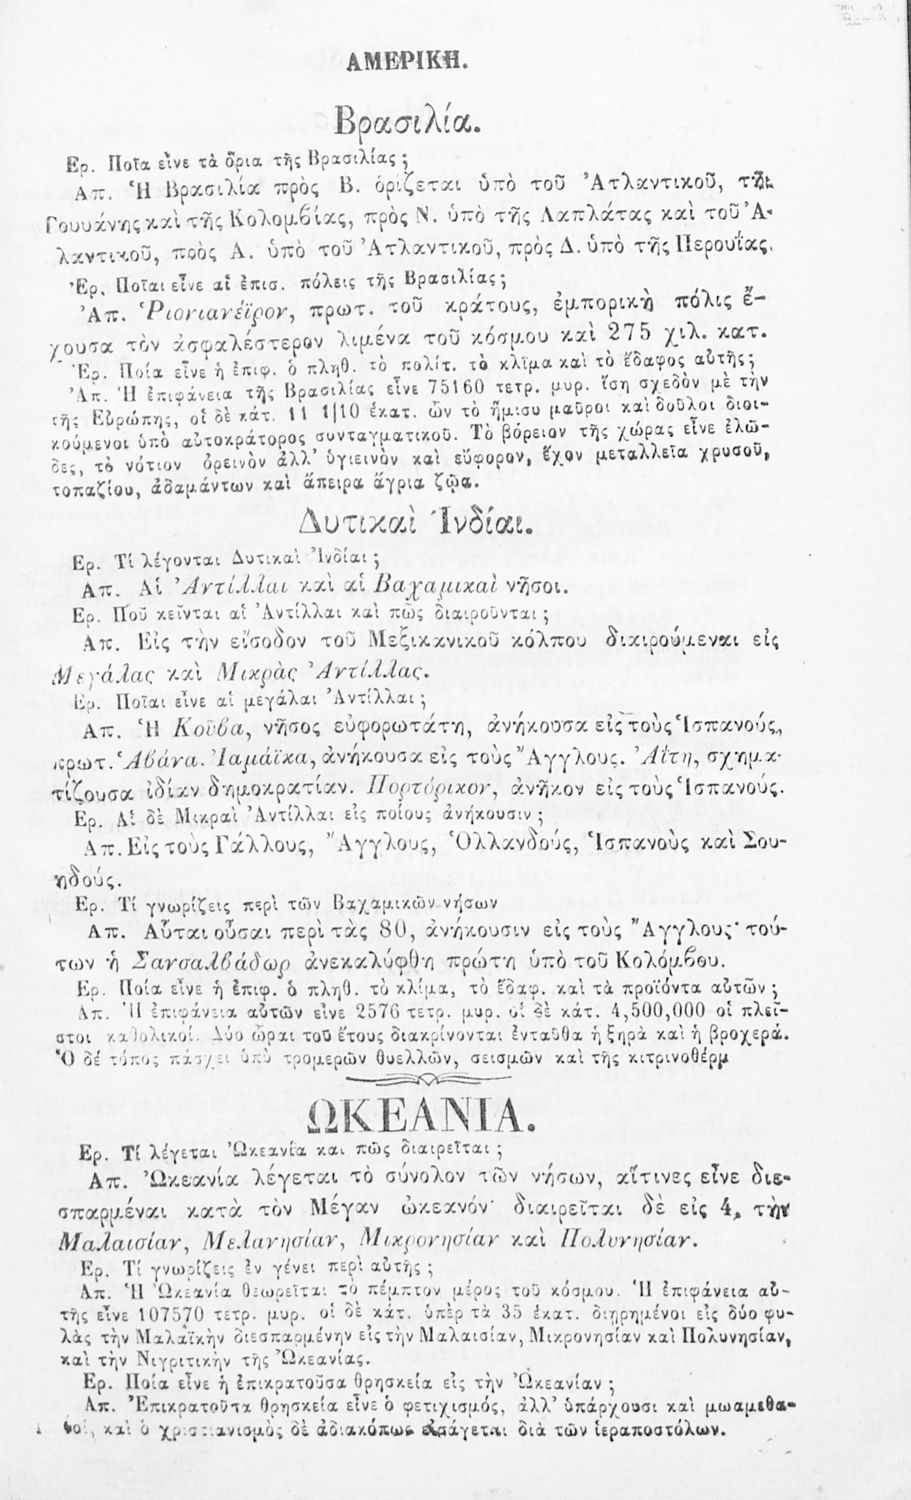 ΑΜΕΡΙΚΗ.
Βρασιλία.
Ερ. Ποῖα εἶνε τὰ ὅρια τῆς Βρασιλίας ;
Απ. Ἡ Βρασιλία πρὸς Β. ὁρίζεται ὑπὸ τοῦ Ἀτλαντικοῦ, τῆς
Γουυάνης καὶ τῆς Κολομβίας, πρὸς Ν. ὑπὸ τῆς Λαπλάτας καὶ τοῦ Ἀ-
λαντικοῦ, πρὸς Α. ὑπὸ τοῦ Ἀτλαντικοῦ, πρὸς Δ. ὑπὸ τῆς Περουΐας.
Ἐρ. Ποῖαι εἶνε αἱ ἐπισ. πόλεις τῆς Βρασιλίας ;
Ἀπ. Ῥιονιανέϊρον, πρωτ. τοῦ κράτους, ἐμπορικὴ πόλις ἔ-
χουσα τὸν ἀσφαλέστερον λιμένα τοῦ κόσμου καὶ 275 χιλ. κατ.
Ἐρ. Ποία εἶνε ἡ ἐπιφ. ὁ πληθ. τὸ πολίτ. τὸ κλῖμα καὶ τὸ ἔδαφος αὐτῆς ;
Ἀπ. Ἡ ἐπιφάνεια τῆς Βρασιλίας εἶνε 75160 τετρ. μυρ. ἴση σχεδὸν μὲ τὴν
τῆς Εὐρώπης, οἱ δὲ κάτ. 11 1|10 ἑκατ. ὧν τὸ ἥμισυ μαῦροι καὶ δοῦλοι διοι-
κούμενοι ὑπὸ αὐτοκράτορος συνταγματικοῦ. Τὸ βόρειον τῆς χώρας εἶνε ἑλῶ-
δες, τὸ νότιον ὀρεινὸν ἀλλ' ὑγιεινὸν καὶ εὔφορον, ἔχον μεταλλεῖα χρυσοῦ,
τοπαζίου, ἀδαμάντων καὶ ἄπειρα ἄγρια ζῷα.
Δυτικαὶ Ἰνδίαι.
Ερ. Τί λέγονται Δυτικαὶ Ἰνδίαι ;
Απ. Αἱ Ἀντίλλαι καὶ αἱ Βαχαμικαὶ νῆσοι.
Ερ. Ποῦ κεῖνται αἱ Ἀντίλλαι καὶ πῶς διαιροῦνται ;
Απ. Εἰς τὴν εἴσοδον τοῦ Μεξικανικοῦ κόλπου διαιρούμεναι εἰς
Μεγάλας καὶ Μικρὰς Ἀντίλλας.
Ερ. Ποῖαι εἶνε αἱ μεγάλαι Ἀντίλλαι ;
Απ. Ἡ Κοῦβα, νῆσος εὐφορωτάτη, ἀνήκουσα εἰς τοὺς Ἱσπανούς,
πρωτ. Ἁβάνα. Ἰαμάϊκα, ἀνήκουσα εἰς τοὺς Ἄγγλους. Ἀΐτη, σχημα-
τίζουσα ἰδίαν δημοκρατίαν. Πορτόρικον, ἀνῆκον εἰς τοὺς Ἱσπανούς.
Ερ. Αἱ δὲ Μικραὶ Ἀντίλλαι εἰς ποίους ἀνήκουσιν ;
Απ. Εἰς τοὺς Γάλλους, Ἄγγλους, Ὁλλανδούς, Ἱσπανοὺς καὶ Σου-
ηδούς.
Ερ. Τί γνωρίζεις περὶ τῶν Βαχαμικῶν νήσων
Απ. Αὗται οὖσαι περὶ τὰς 80, ἀνήκουσιν εἰς τοὺς Ἄγγλους· τού-
των ἡ Σανσαλβάδωρ ἀνεκαλύφθη πρώτη ὑπὸ τοῦ Κολόμβου.
Ερ. Ποία εἶνε ἡ ἐπιφ. ὁ πληθ. τὸ κλίμα, τὸ ἔδαφ. καὶ τὰ προϊόντα αὐτῶν ;
Απ. Ἡ ἐπιφάνεια αὐτῶν εἶνε 2576 τετρ. μυρ. οἱ δὲ κάτ. 4,500,000 οἱ πλεῖ-
στοι καθολικοί. Δύο ὧραι τοῦ ἔτους διακρίνονται ἐνταῦθα ἡ ξηρὰ καὶ ἡ βροχερά.
Ὁ δέ τόπος πάσχει ὑπὸ τρομερῶν θυελλῶν, σεισμῶν καὶ τῆς κιτρινοθέρμ
ΩΚΕΑΝΙΑ.
Ερ. Τί λέγεται Ὠκεανία και πῶς διαιρεῖται ;
Απ. Ὠκεανία λέγεται τὸ σύνολον τῶν νήσων, αἵτινες εἶνε διε-
σπαρμέναι κατὰ τὸν Μέγαν ὠκεανόν· διαιρεῖται δὲ εἰς 4, τὴν
Μαλαισίαν, Μελανησίαν, Μικρονησίαν καὶ Πολυνησίαν.
Ερ. Τί γνωρίζεις ἐν γένει περὶ αὐτῆς ;
Απ. Ἡ Ὠκεανία θεωρεῖται τὸ πέμπτον μέρος τοῦ κόσμου. Ἡ ἐπιφάνεια αὐ-
τῆς εἶνε 107570 τετρ. μυρ. οἱ δὲ κάτ. ὑπὲρ τὰ 35 ἑκατ. διῃρημένοι εἰς δύο φυ-
λὰς τὴν Μαλαϊκὴν διεσπαρμένην εἰς τὴν Μαλαισίαν, Μικρονησίαν καὶ Πολυνησίαν,
καὶ τὴν Νιγριτικὴν τῆς Ὠκεανίας.
Ερ. Ποία εἶνε ἡ ἐπικρατοῦσα θρησκεία εἰς τὴν Ὠκεανίαν ;
Απ. Ἐπικρατοῦσα θρησκεία εἶνε ὁ φετιχισμός, ἀλλ' ὑπάρχουσι καὶ μωαμεθα-
νοί, καὶ ὁ χριστιανισμὸς δὲ ἀδιακόπως εἰσάγεται διὰ τῶν ἱεραποστόλων.